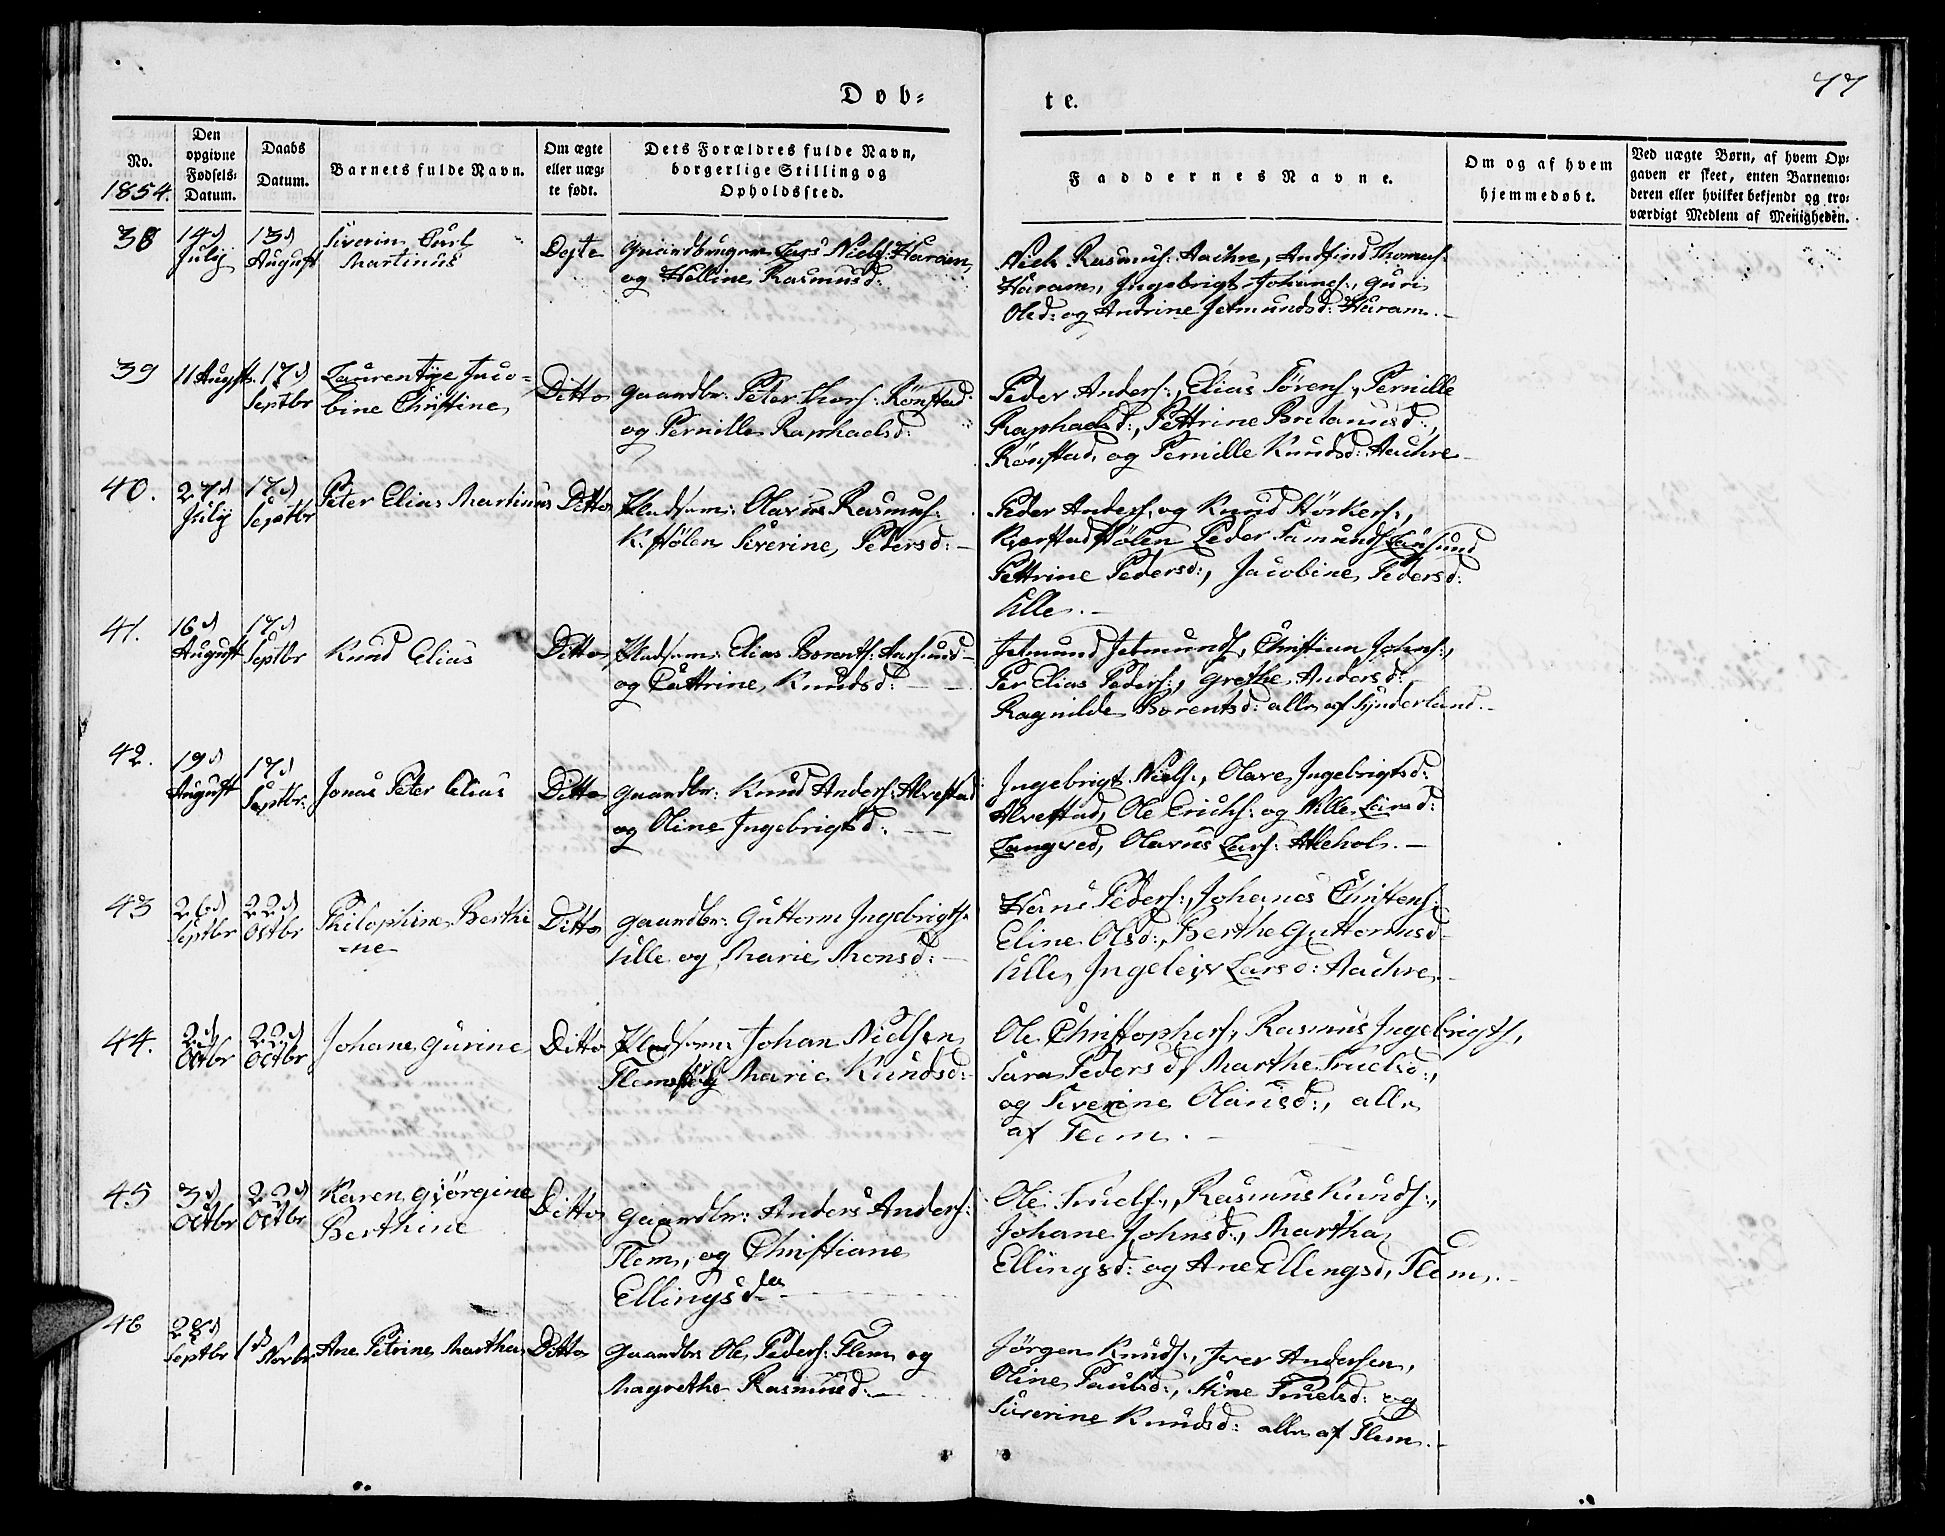 77
Døb-
te.
No.
1854.
Den
opgivne
Fødsels-
Datum.
Daabs
Datum.
Barnets fulde Navn.
Om ægte
eller uæg-
te født.
Dets Forældres fulde Navn,
borgerlige Stilling og
Opholdssted.
Faddernes Navne.
Om og af hvem
hjemmedøbt.
Ved uægte Børn, af hvem Op-
gaven er skeet, enten Barnemo-
deren eller hvilket bekjendt og tro-
værdigt Medlem af Menigheden.
38
14d
July
13d
August
Siverin Carl
Martinus
Egte
Gaardbruger Lars Niels: Haram
og Helline Rasmusd:
Niels Rasmus: Aachre, Andfind Thomas:
Haram, Ingebrigt Johans:, Guri
Olsd: og Andrine Jetmundsd: Haram.
39
11 August
17d
Septbr
Laurentze Jaco-
bine Christine
Ditto
Gaardbr: Peter Lars: Rönstad
og Pernille Raphaelsd:
Peder Anders:, Elias Sörens:, Pernille
Raphaelsd:, Pettrine Britanusd:,
Rönstad, og Pernille Knudsd: Aachre
40.
27d
July
17d
Septbr
Peter Elias Martinus
Ditto
Pladsm: Olavus Rasmus:
K:stölen Siverine Petersd:
Peder Anders: og Knud Störkers:,
Kjerstadstölen Peder Samunds:
Pettrine Pedersd:, Jacobine Pedersd:
Ulle.
41.
16d
August
17d
Septbr
Knud Elias
Ditto
Pladsm: Elias Borents: Harsund
og Cattrine Knudsd:
Jetmund Jetmunds:, Christian Johns:,
Per Elias Peders:, Grethe Andersd:,
Ragnilde Borentsd: alle af Synderland.
42.
19d
August
17d
Septbr:
Jonas Peter Elias
Ditto
Gaardbr: Knud Anders: Alvestad
og Oline Ingebrigtsd:
Ingebrigt Niels:, Olave Ingebrigtsd:
Alvestad, Ole Erichs: og Nille Larsd:
Langved, Olavus Lars: Allehol.
43
26d
Septbr
22d
Octbr
Philophine Berthi
-ne
Ditto
Gaardbr: Guttorm Ingebrigts:
Ulle og Marie Monsd:
Hans Peders:, Johanes Christens:
Eline Olsd:, Berthe Guttormsd
Ulle, Ingeleiv Larsd: Aachre
44.
2d
Octbr
22d
Octbr
Johane Gurine
Ditto
Pladsm: Johan Nielsen
Flem og Marie Knudsd:
Ole Christophers:, Rasmus Ingebrigts:,
Sara Pedersd, Marthe Truelsd:,
og Siverine Olausd:, alle
af Flem.
45
3d
Octbr
22d
Octbr
Karen Gjörgine
Berthine
Ditto
Gaardbr: Anders Anders:
Flem, og Christiane
Ellingsd:
Ole Truels:, Rasmus Knuds:,
Johane Johnsd:, Martha
Ellingsd: og Ane Ellingsd, Flem.
46
28d
Septbr
1d Novbr
Ane Petrine Martha
Ditto
Gaardbr Ole Peders: Flem og
Magrethe Rasmusd:
Jörgen Knuds:, Iver Andersen,
Oline Paulsd:, Stine Truelsd: og
Siverine Knudsd: alle af Flem.